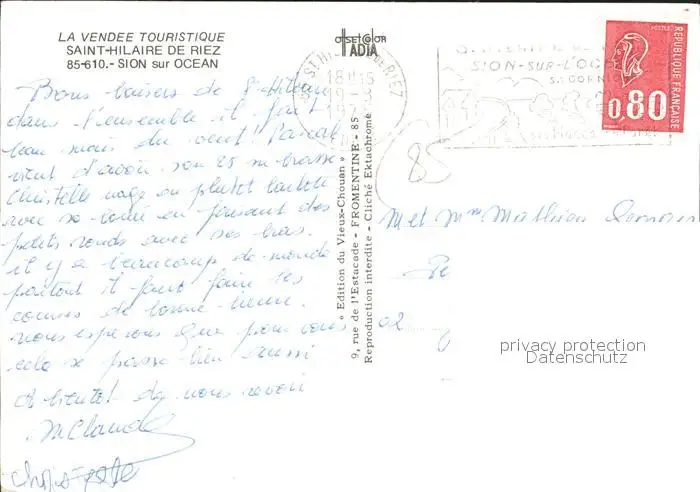 LA VENDEE TOURISTIQUE
SAINT-HILAIRE DE RIEZ
85-610.- SION sur OCEAN
Bons baisers de St Hilaire
dans l'ensemble il fait
beau mais du vent. Pascal
vient d'avoir son 25 m brasse
Christelle nage ou plutôt barbote
avec sa bouée en faisant des
petits ronds avec ses bras.
il y a beaucoup de monde
partout il faut faire ses
courses de bonne heure.
nous espérons que pour vous
cela se passe bien aussi
A bientôt de vous revoir
M Claude
Christelle
offset COLOR
JADIA
« Edition du Vieux-Chouan »
9, rue de l'Estacade - FROMENTINE - 85
Reproduction interdite - Cliché Ektachrome
ST HILAIRE DE RIEZ
18 H 15
SION-SUR-L'OCEAN
POSTES
REPUBLIQUE FRANÇAISE
0,80
85
M et Mme Mathieu
02
privacy protection
Datenschutz